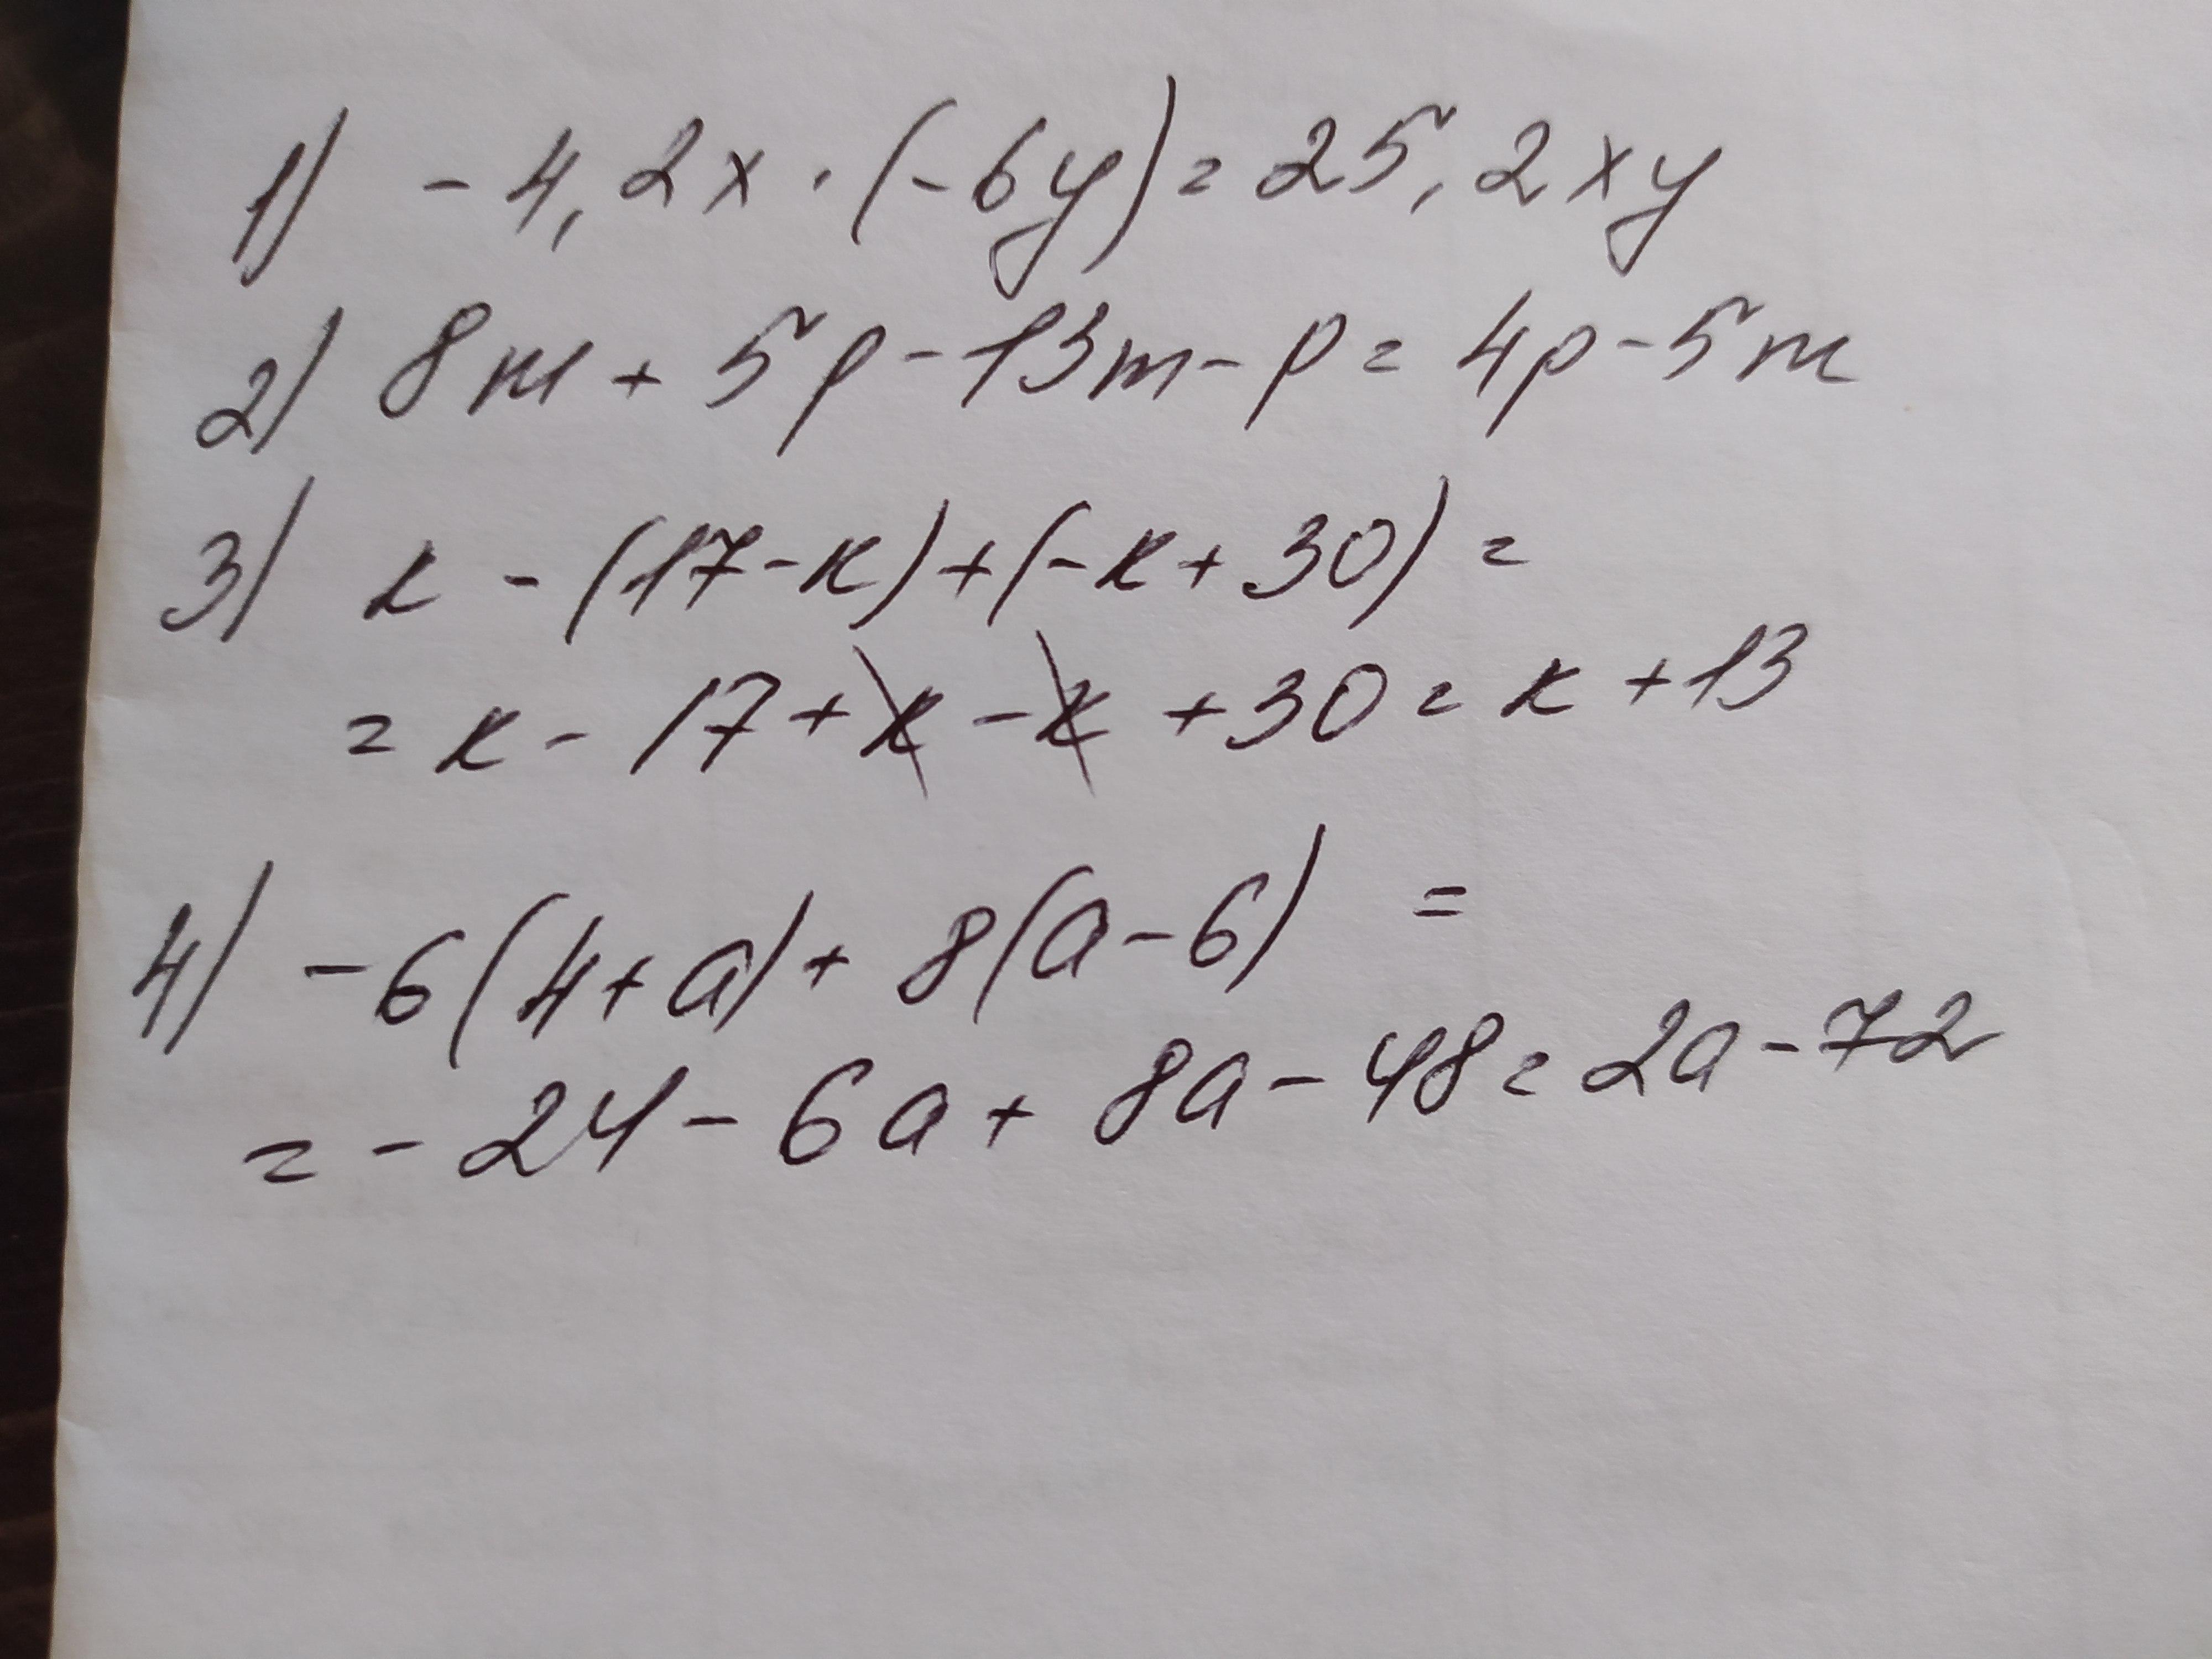 1) -4,2x·(-6y)=25,2xy
2) 8m+5p-13m-p=4p-5m
3) к-(17-к)+(-к+30)=
=к-17+к-к+30=к+13
4) -6(4+a)+8(a-6)=
=-24-6a+8a-48=2a-72